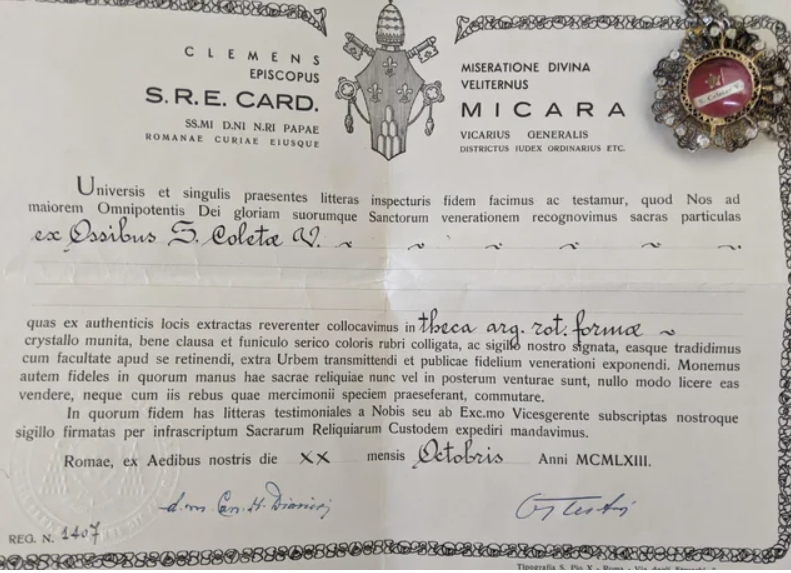 CLEMENS
EPISCOPUS
S. R. E. CARD.
SS.MI D.NI N.RI PAPAE
ROMANAE CURIAE EIUSQUE
MISERATIONE DIVINA
VELITERNUS
MICARA
VICARIUS GENERALIS
DISTRICTUS IUDEX ORDINARIUS ETC.
S. Coletae V.
Universis et singulis praesentes litteras inspecturis fidem facimus ac testamur, quod Nos ad
maiorem Omnipotentis Dei gloriam suorumque Sanctorum venerationem recognovimus sacras particulas
ex Ossibus S. Coletæ V. ~ ~ ~ ~ ~ ~.
quas ex authenticis locis extractas reverenter collocavimus in theca arg. rot. formæ ~
crystallo munita, bene clausa et funiculo serico coloris rubri colligata, ac sigillo nostro signata, easque tradidimus
cum facultate apud se retinendi, extra Urbem transmittendi et publicae fidelium venerationi exponendi. Monemus
autem fideles in quorum manus hae sacrae reliquiae nunc vel in posterum venturae sunt, nullo modo licere eas
vendere, neque cum iis rebus quae mercimonii speciem praeseferant, commutare.
In quorum fidem has litteras testimoniales a Nobis seu ab Exc.mo Vicesgerente subscriptas nostroque
sigillo firmatas per infrascriptum Sacrarum Reliquiarum Custodem expediri mandavimus.
Romae, ex Aedibus nostris die XX mensis Octobris Anni MCMLXIII.
REG. N. 1407
Tipografia S. Pio X - Roma - Via degli